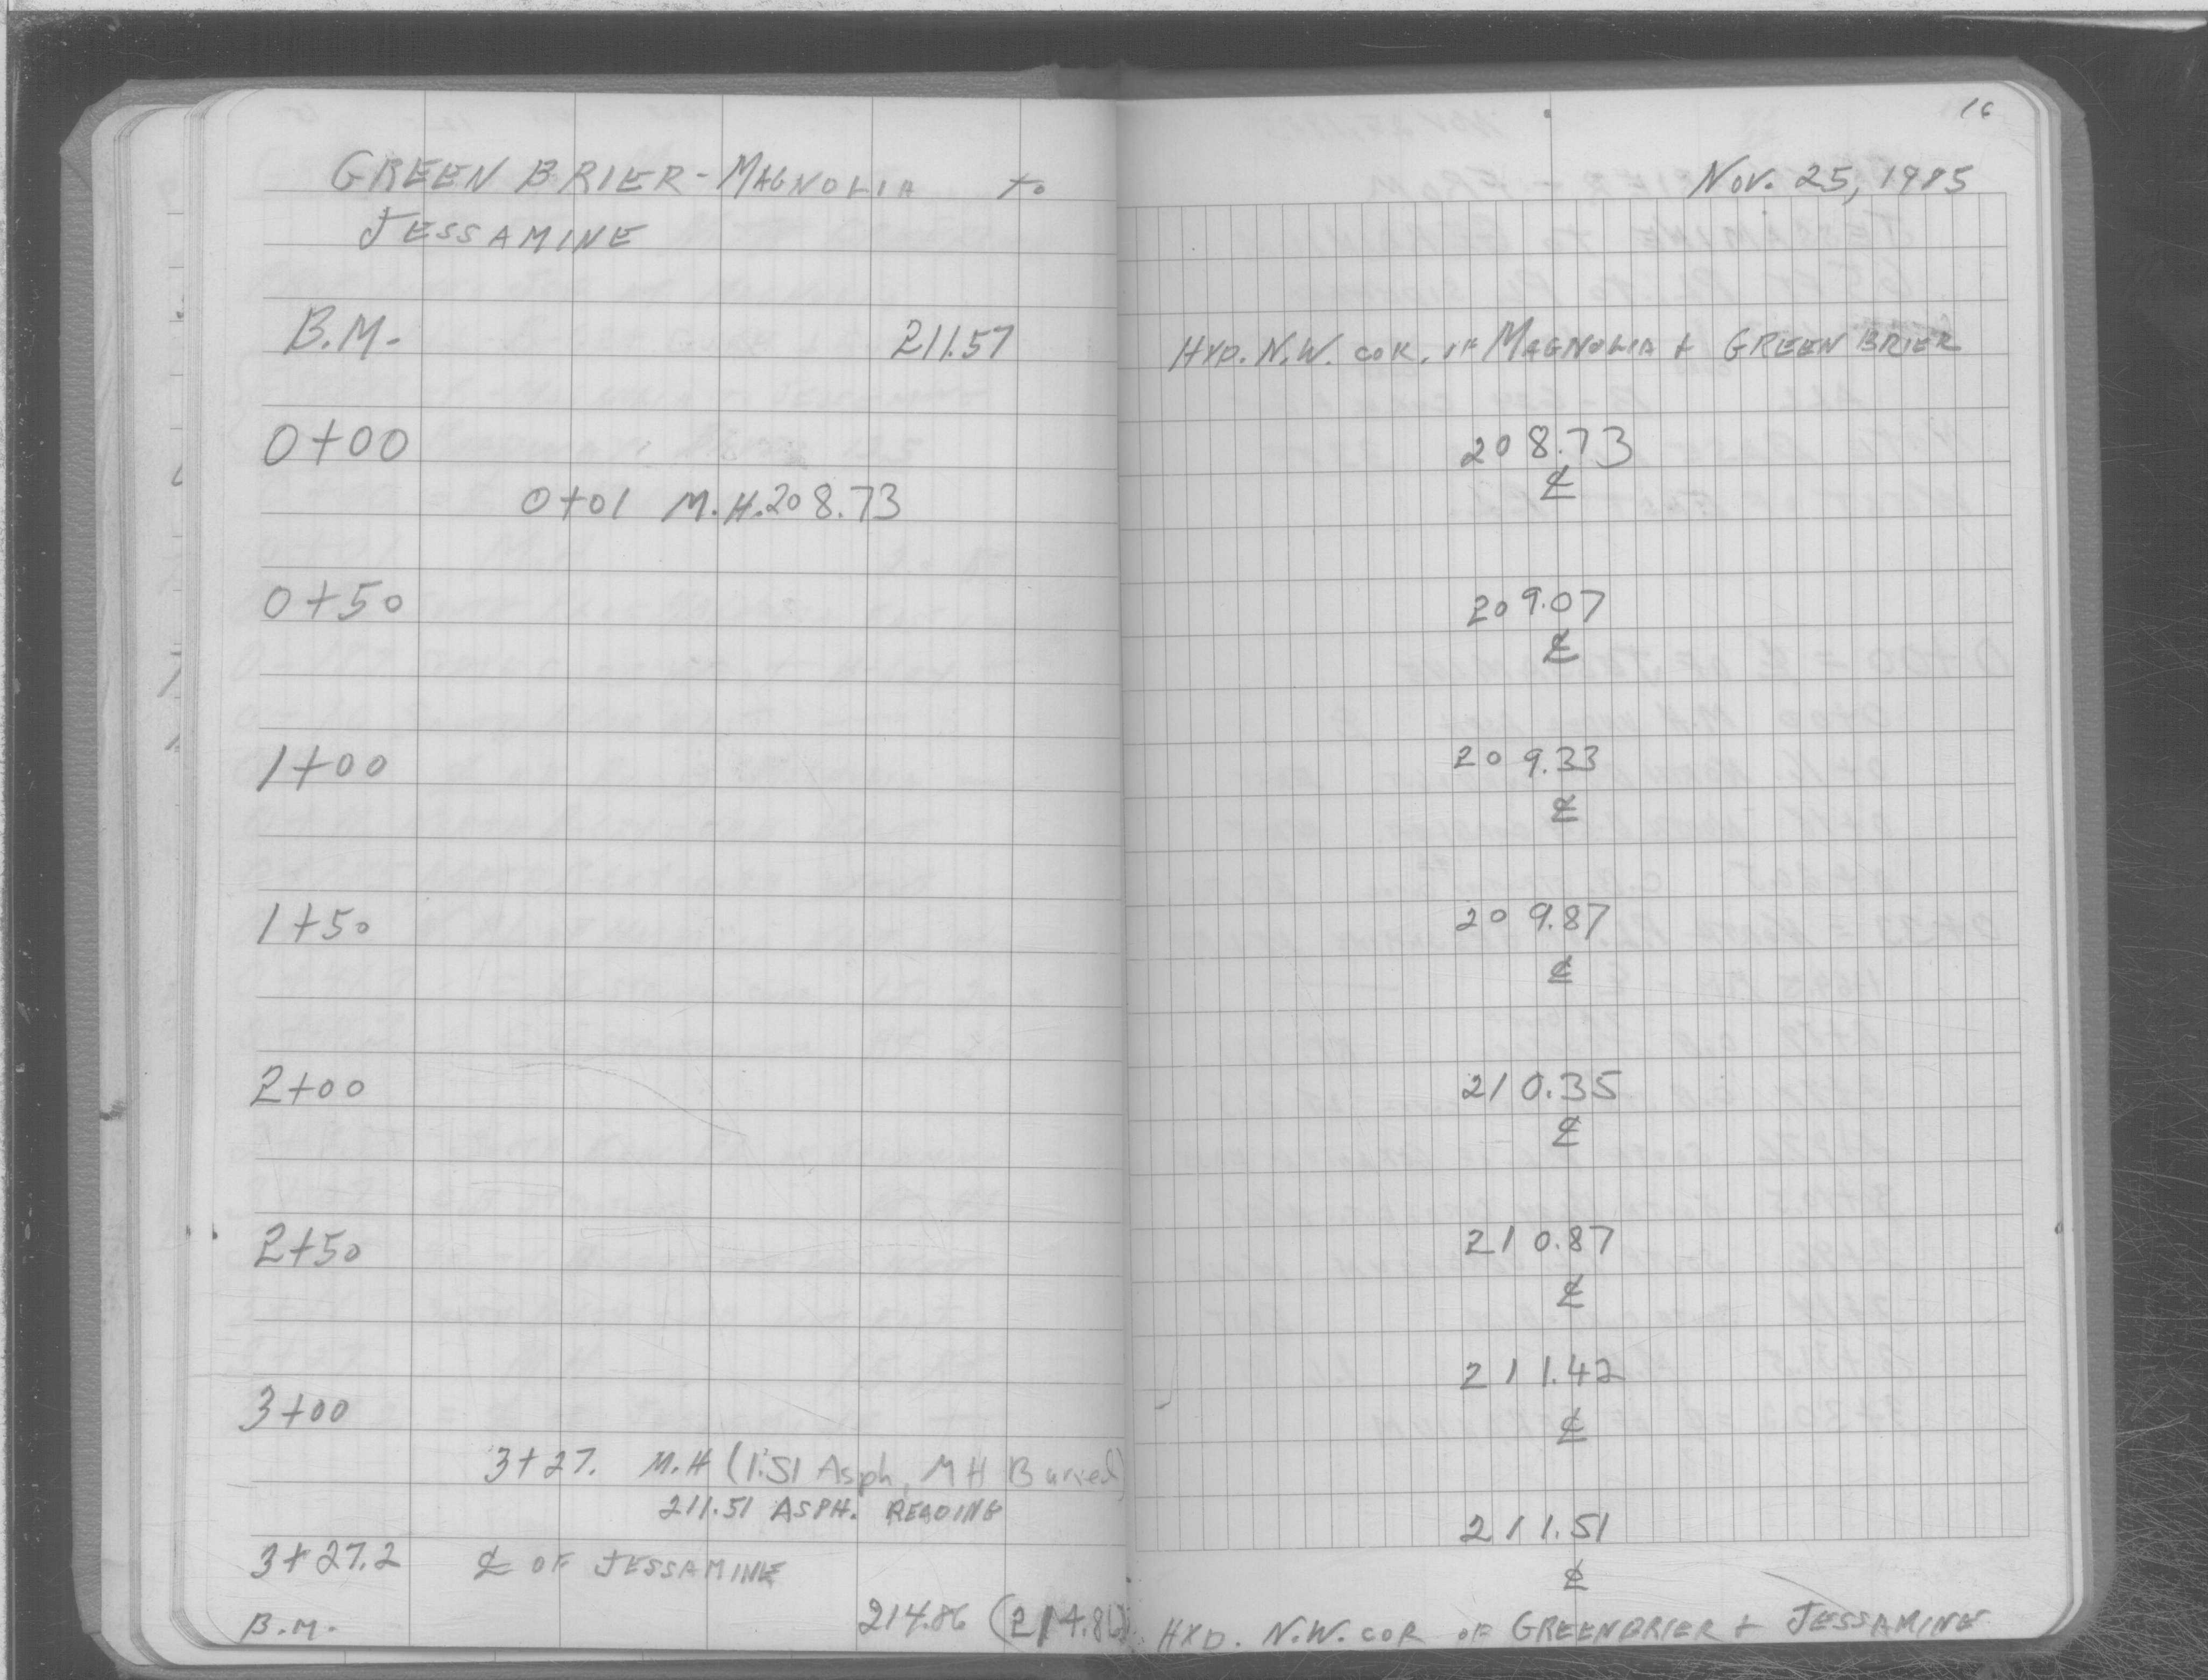 16
GREEN BRIER - MAGNOLIA to
JESSAMINE
Nov. 25, 1985
B.M. 211.57 HYD. N.W. COR. OF MAGNOLIA + GREEN BRIER
0+00 208.73
℄
0+01 M.H. 208.73
0+50 209.07
℄
1+00 209.33
℄
1+50 209.87
℄
2+00 210.35
℄
2+50 210.87
℄
3+00 211.42
℄
3+27. M.H (1.51 Asph, MH Buried)
211.51 ASPH. READING
3+27.2 ℄ OF JESSAMINE 211.51
℄
B.M. 214.86 (214.86) HYD. N.W. COR OF GREENBRIER + JESSAMINE